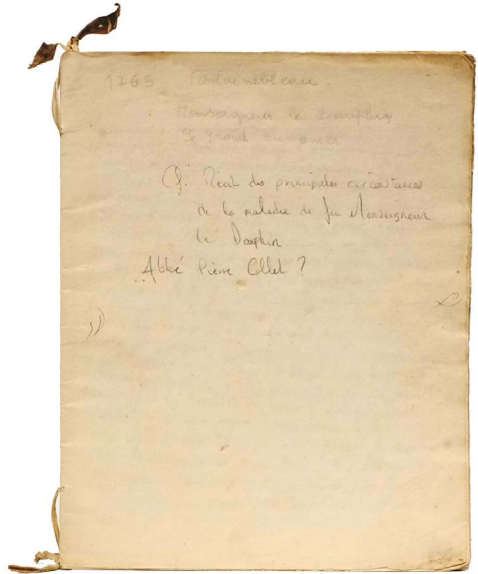 1765 Fontainebleau
Monseigneur le Dauphin
le grand aumonier
Cf. Récit des principales circonstances
de la maladie de feu Monseigneur
le Dauphin
Abbé Pierre Collet ?